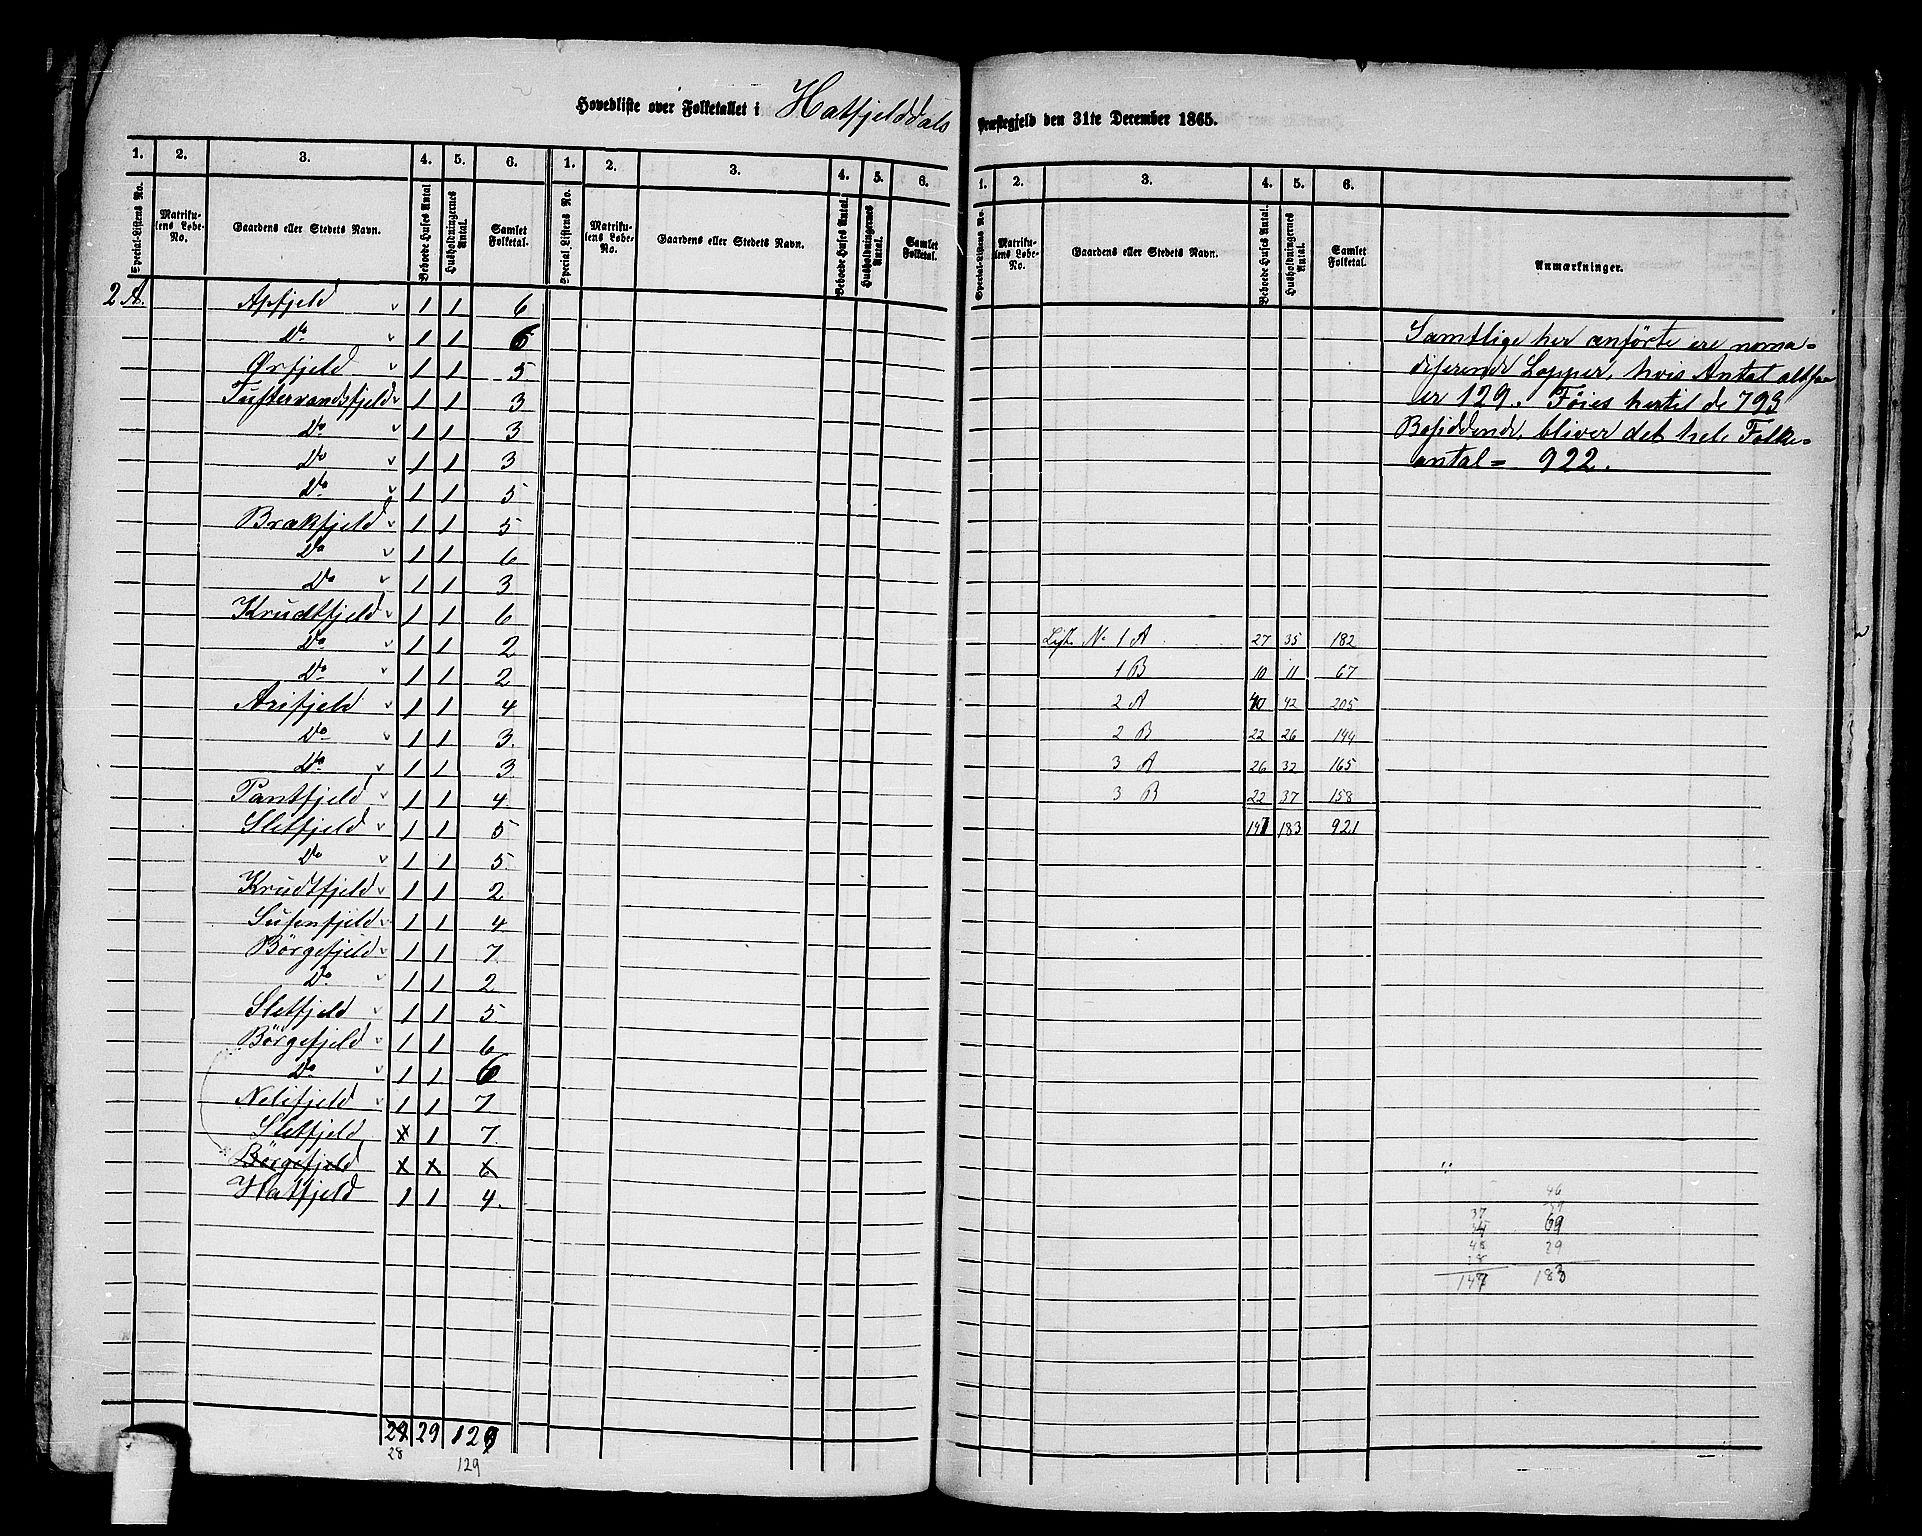 Hovedliste over Folketallet i Hatfjelddals Præstegjeld den 31te December 1865.
1. 2. 3. 4. 5. 6. 1. 2. 3. 4. 5. 6. 1. 2. 3. 4. 5. 6.
Special-Listens No. Matrikulens Løbe-No. Gaardens eller Stedets Navn. Beboede Huses Antal Husholdningernes Antal. Samlet Folketal. Special Listens No. Matrikulens Løbe-No. Gaardens eller Stedets Navn. Beboede Huses Antal. Husholdningernes Antal. Samlet Folketal. Special-Listens No. Matrikulens Løbe-No. Gaardens eller Stedets Navn. Beboede Huses Antal. Husholdningernes Antal. Samlet Folketal. Anmærkninger.
2 A. Apfjeld 1 1 6
Do 1 1 6
Ørfjeld 1 1 5
Tustervandsfjeld 1 1 3
Do 1 1 3
Do 1 1 3
Do 1 1 5
Brakfjeld 1 1 5
Do 1 1 6
Do 1 1 3
Krudtfjeld 1 1 6
Do 1 1 2
Do 1 1 2
Arefjeld 1 1 4
Do 1 1 3.
Do 1 1 3
Pantfjeld 1 1 4
Sletfjeld 1 1 5
Do 1 1 5
Krudtfjeld 1 1 2
Susenfjeld 1 1 4
Börgefjeld 1 1 7
Do 1 1 2
Sletfjeld 1 1 5
Börgefjeld 1 1 6
Do 1 1 6
Nelifjeld 1 1 7
Sletfjeld x 1 7
Börgefjeld x x 6
Hatfjeld 1 1 4.
29 29 129
28 129
Samtlige her anførte ere noma-
diserende Lapper, hvis Antal altsaa
er 129. Føies hertil de 793
Bosiddende, bliver det hele Folke-
antal = 922.
List. No 1 A 27 35 182
1 B 10 11 67
2 A 40 42 205
2 B 22 26 144
3 A 26 32 165
3 B 22 37 158
147 183 921
37 69
29
147 183